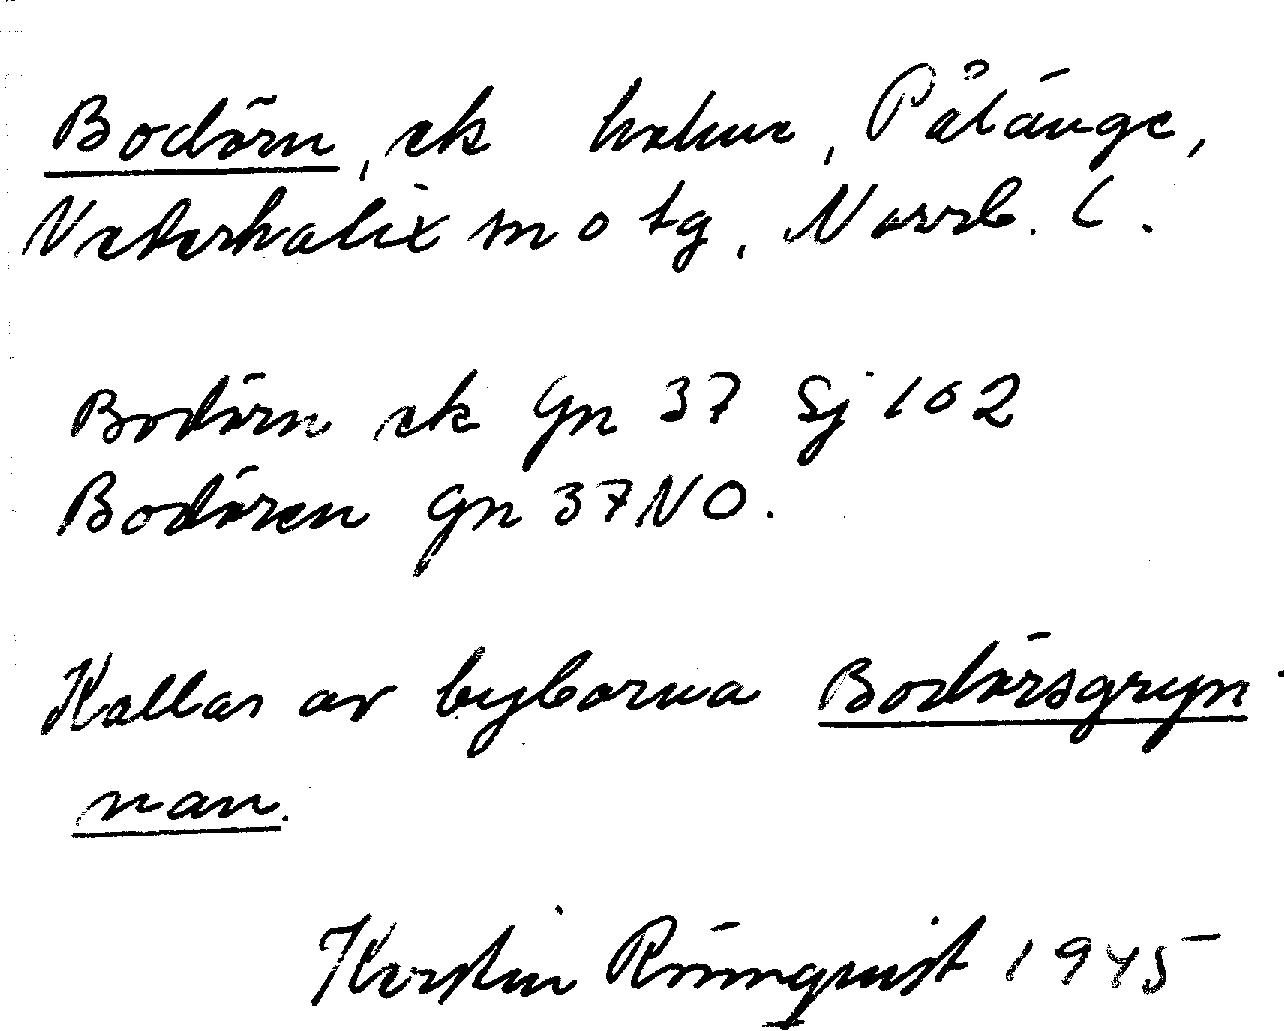 Bodörn, sk holme, Pålänge,
Nederkalix sn o tg, Norrb. l.
Bodörn sk Gn 37 Sj 102
Bodören Gn 37 NO.
Kallas av byborna Bodörsgryn-
nan.
Kerstin Rönnquist 1945